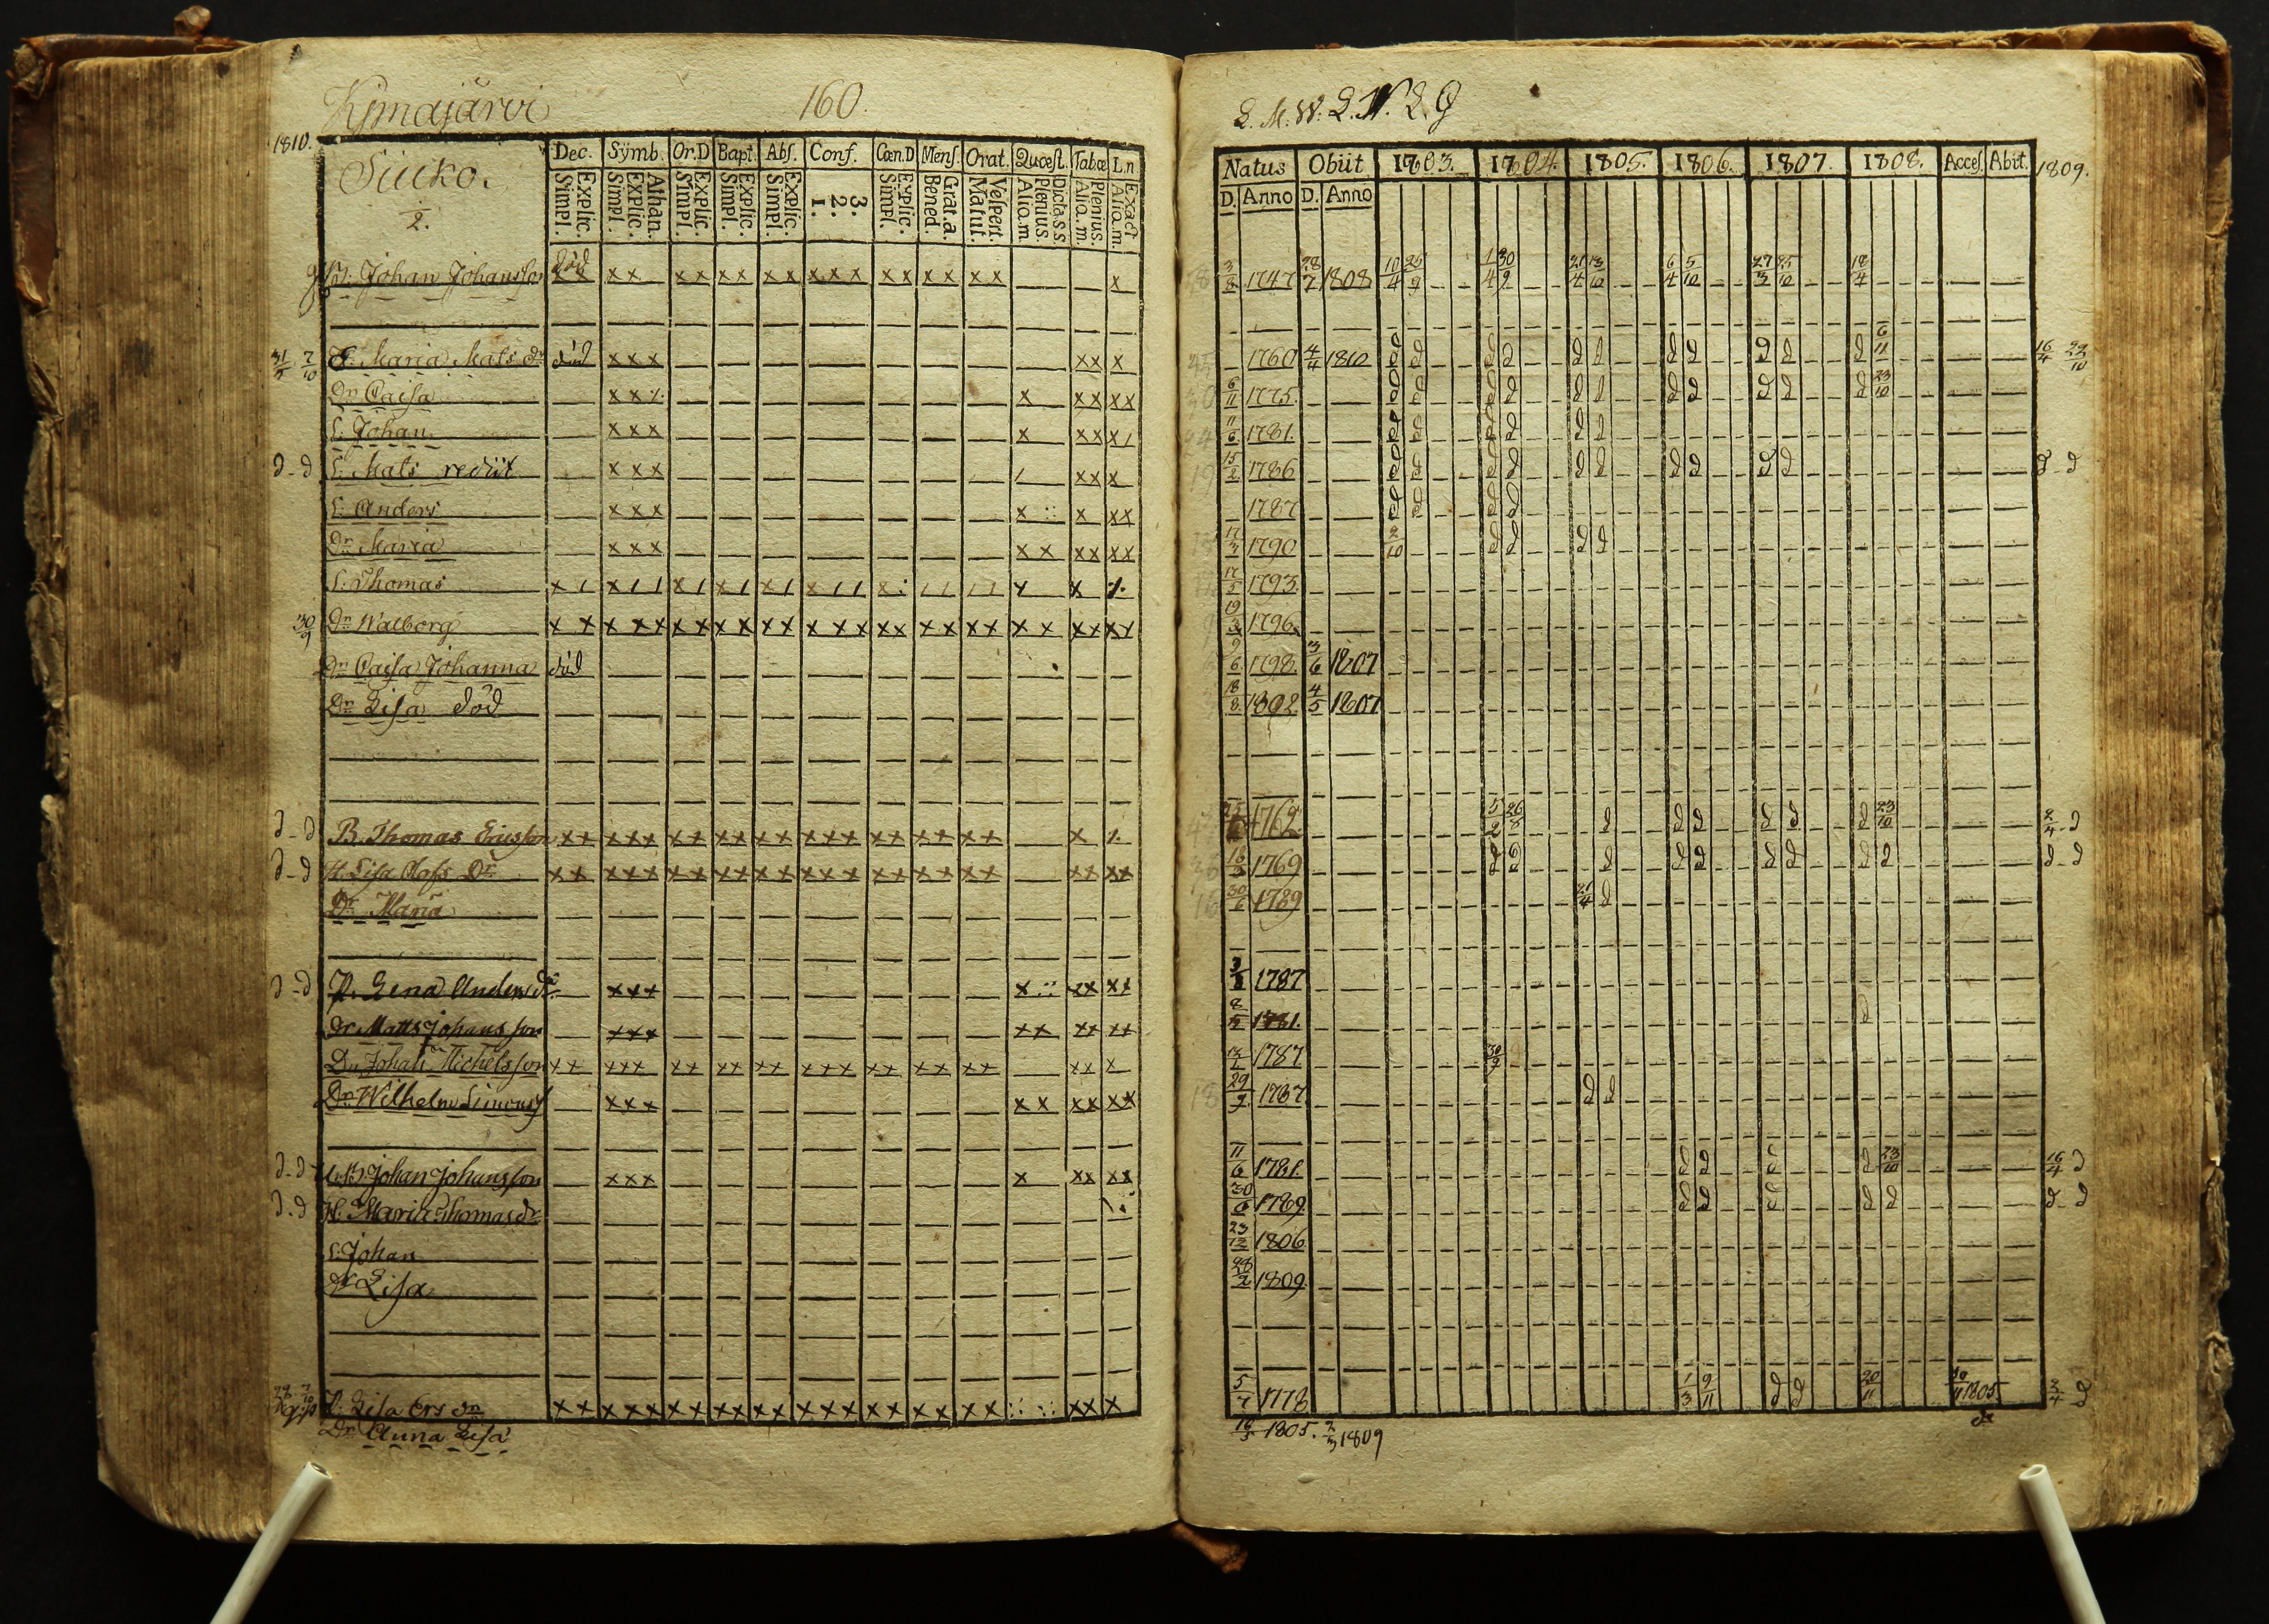 Kymajärvi 160.
1810.
Siuko.
2.
Dec. Sÿmb. Or.D Bapt. Abſ. Conf. Cœn.D Menſ. Orat. Quœſt. Tabœ L.n
Explic. Simpl. Athan. Explic. Simpl. Explic. Simpl. Explic. Simpl. Explic. Simpl. 3. 2. 1. Explic. Simpl. Grat.a. Bened. Veſpert. Matut. Dicta S S Plenius. Aliq.m Plenius. Aliq.m. Exact Aliq.m.
Johan Johansson död xx xx xx xx xx xxx xx xx xx x
31/3 7/10 E. Maria Mats dr död xxx xx x
Dr Caisa xxx x xx xx
S. Johan xxx x xx x/
d - d S. Mats rediit xxx / xx x
S. Anders xxx x :: x xx
Dr Maria xxx xx xx xx
S. Thomas x/ x// x/ x/ x/ x// x: // // x x
30/9 Dr Walborg xx xxx xx xx xx xxx xx xx xx xx xx xx
Dr Caisa Johanna död
Dr Lisa död
d - d B. Thomas Ericsson xx xxx xx xx xx xxx xx xx xx x
d - d H. Lisa Olofs Dr xx xxx xx xx xx xxx xx xx xx xx xx
Dr Maria
d - d P. Lena Anders dr xxx x :: xx xx
Dr Matts Johansson xxx xx xx xx
Dr Johan Michelsson xx xxx xx xx xx xxx xx xx xx xx x
Dr Wilhelm Simonss xxx xx xx xx
d - d Johan Johansson xxx x xx xx
d - d H. Maria Thomas dr
S. Johan
Dr Lisa
P. Lisa Ers dr xx xxx xx xx xx xxx xx xx xx :: xx x
Dr Anna Lisa
L. M. W. L. N. L. G
Natus Obiit 1803. 1804. 1805. 1806. 1807. 1808. Acceſ. Abit. 1809.
D. Anno D. Anno
3/8 1747 28/7 1808 10/4 25/9 1/4 30/9 21/4 13/10 6/4 5/10 27/3 25/10 18/4
1760 4/4 1810 d d d d d d d d d d d 6/11 16/4 22/10
6/11 1775. d d d d d d d d d d d 23/10
11/6 1781. d d d d d d
15/2 1786 d d d d d d d d d d d - d
1787 d d d d
17/3 1790 2/10 d d d d
17/5 1793.
19/3 1796
9/6 1798. 3/6 1807
18/8 1802 4/5 1807
1762. 5/2 26/8 d d d d d d 23/10 2/4 - d
18/3 1769 d d d d d d d d d d - d
30/6 1789 21/4 d
1787
2/5 1781. d
13/1 1787 30/9
29/7 1787 d d
11/6 1781. d d d d 23/10 16/4 d
30/6 1789 d d d d d d - d
23/12 1806
28/2 1809.
5/7 1778 1/3 9/11 d d 20/11 1805. 2/4 d
16/3 1805. 2/3 1809